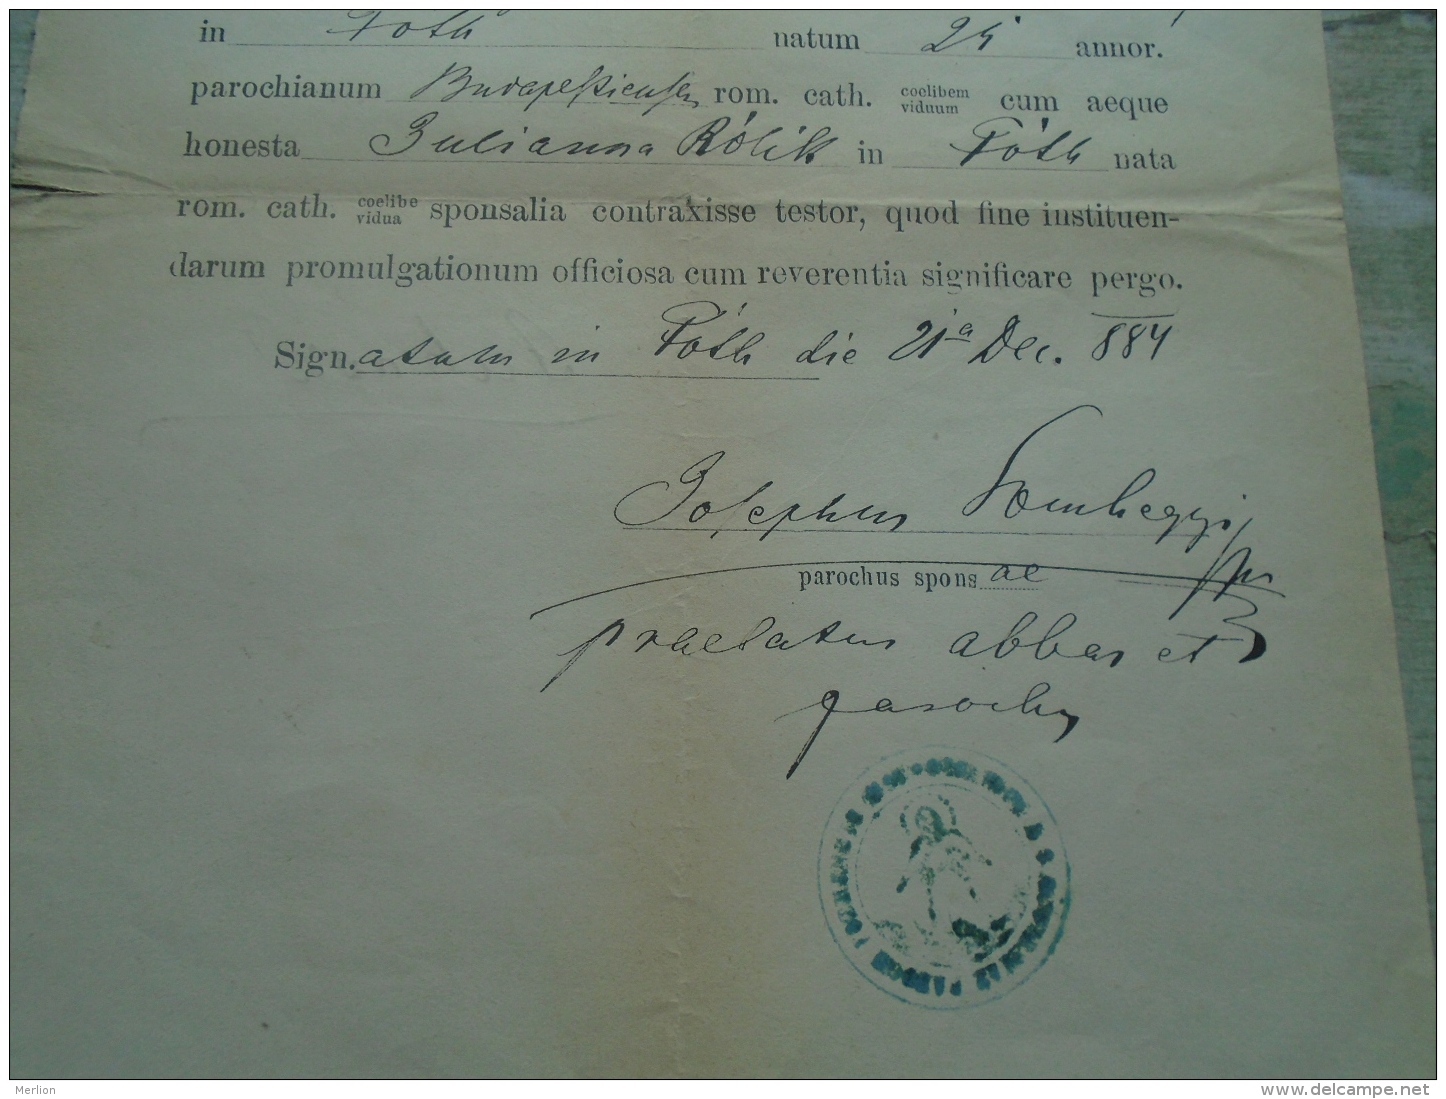 in Fóth natum 24 annor.
parochianum Budapestiensem rom. cath. coelibem viduum cum aeque
honesta Julianna Rólik in Fóth nata
rom. cath. coelibe vidua sponsalia contraxisse testor, quod fine instituen-
darum promulgationum officiosa cum reverentia significare pergo.
Sign.atum in Fóth die 21a Dec. 884
Josephus Somhegyi
parochus spons ae
praelatus abbas et
parochus
Merlion
www.delcampe.net